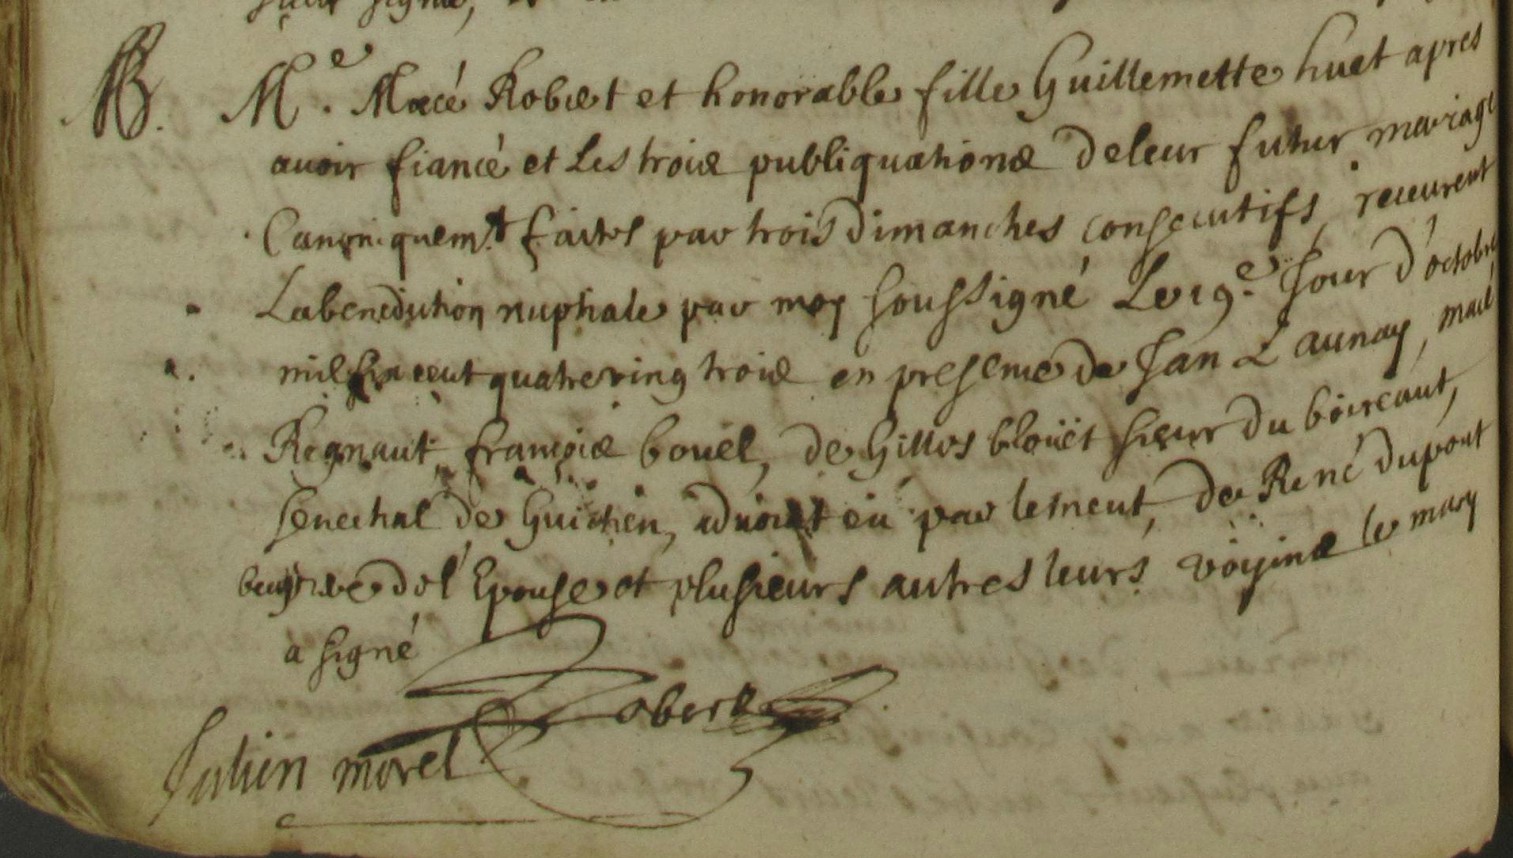 B. Me. Macé Robert et honorable fille Guillemette huet apres
avoir fiancé et les trois publiquations de leur futur mariage
Canoniquemt faites par trois dimanches consecutifs, receurent
La benediction nuptiale par moy soussigné Le 19e. Jour d'octobre
mil six cent quatre ving trois en presence de Jan Launay, macé
Regnaut françois bouël, de Gilles blouët sieur du boireaut,
senechal de Guichen, advocat en parlement, de René dupont
de l'Epouse et plusieurs autres leurs voysins le mary
a signé
Robert
Julien morel